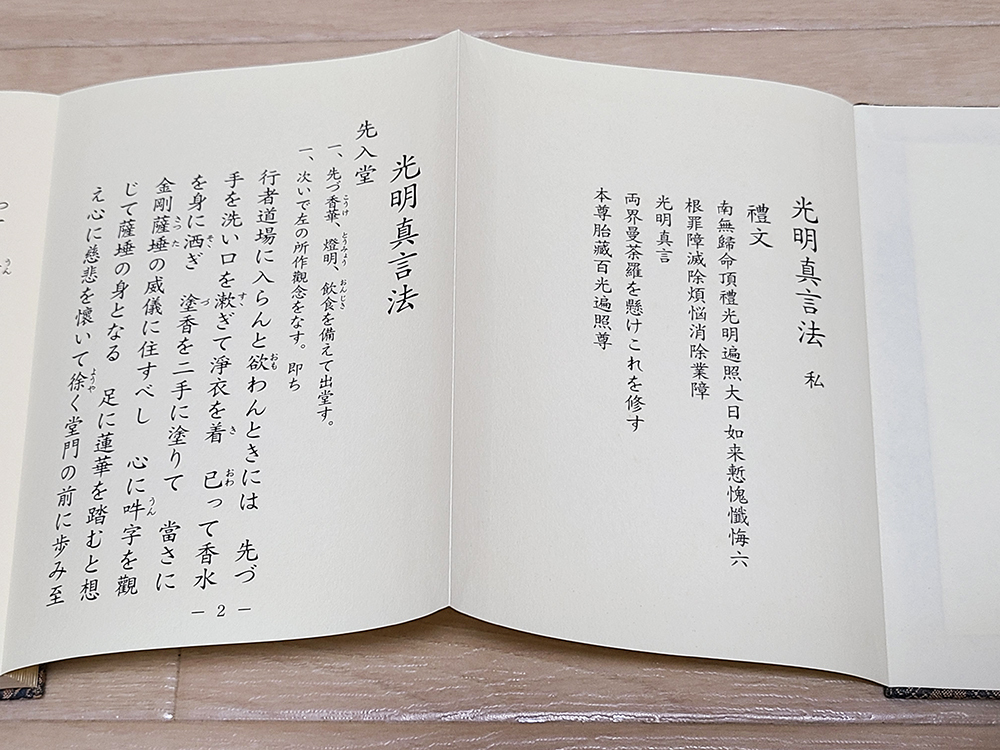 光明真言法 私
禮文
南無歸命頂禮光明遍照大日如来慙愧懺悔六
根罪障滅除煩悩消除業障
光明真言
両界曼荼羅を懸けこれを修す
本尊胎藏百光遍照尊
光明真言法
先入堂
一、先づ香華、燈明、飲食を備えて出堂す。
一、次いで左の所作觀念をなす。即ち
行者道場に入らんと欲わんときには 先づ
手を洗い口を漱ぎて淨衣を着 已って香水
を身に洒ぎ 塗香を二手に塗りて 當さに
金剛薩埵の威儀に住すべし 心に吽字を觀
じて薩埵の身となる 足に蓮華を踏むと想
え心に慈悲を懷いて徐く堂門の前に歩み至
― 2 ―